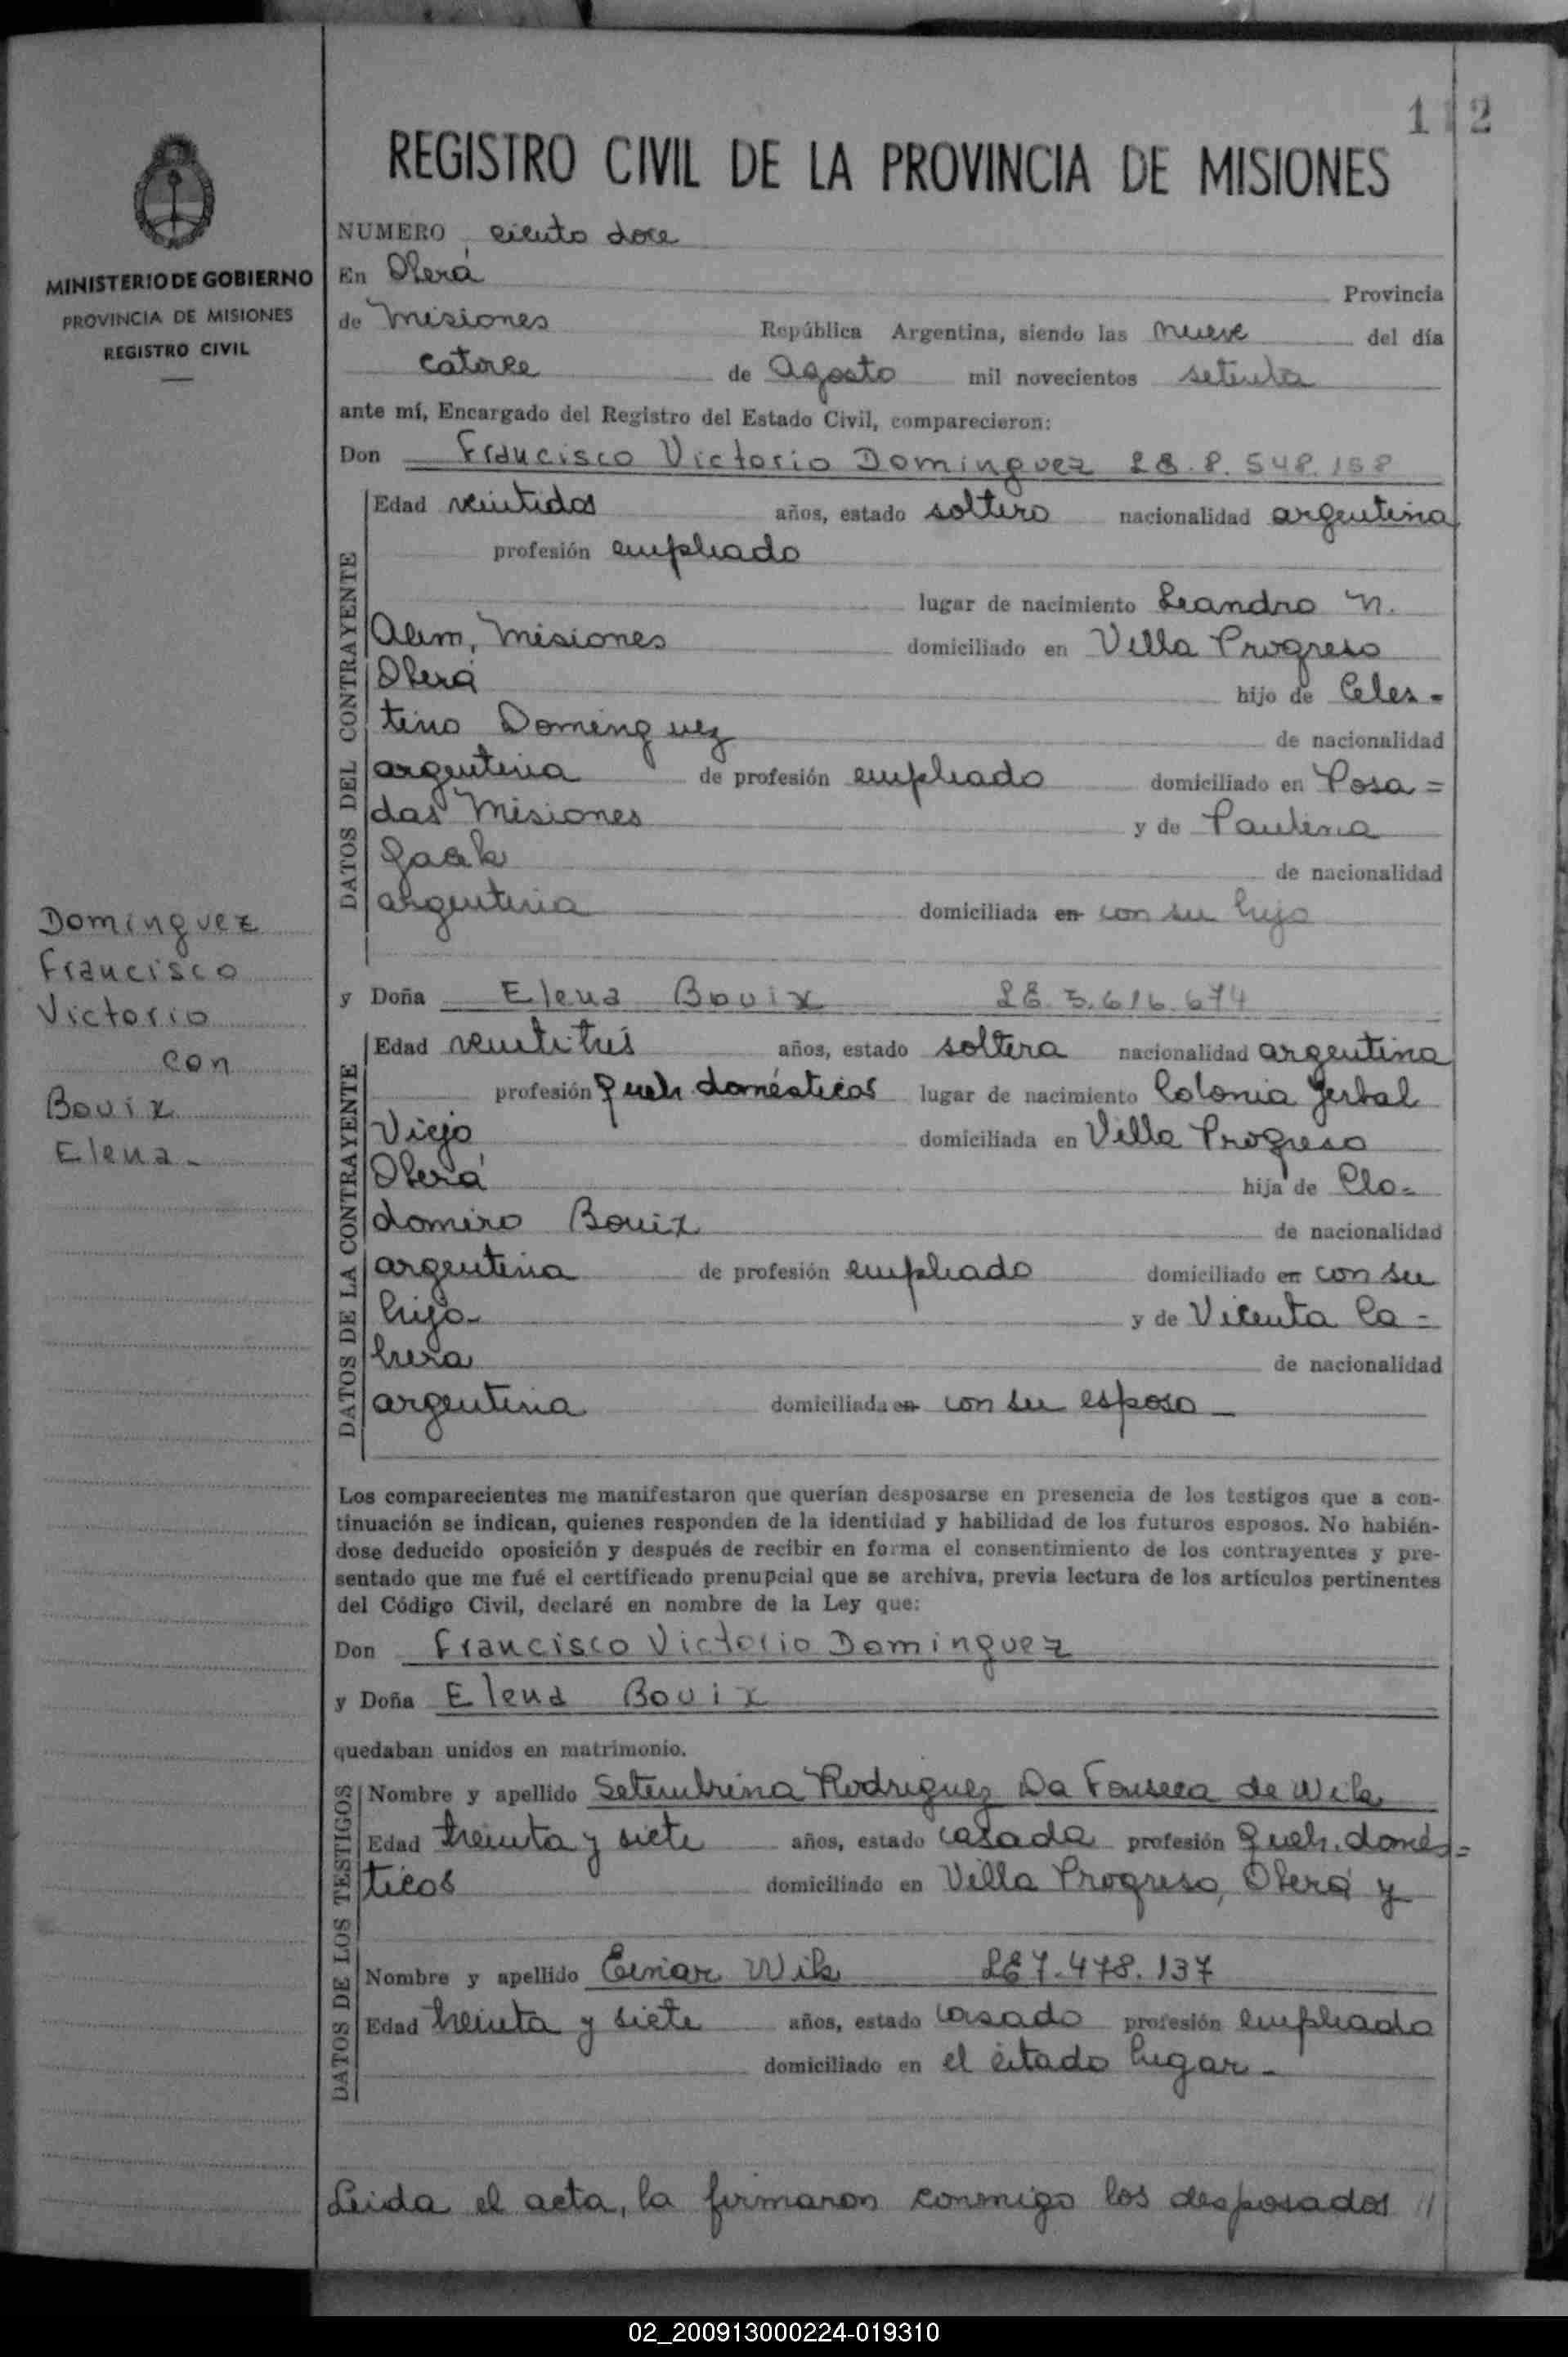 112
REGISTRO CIVIL DE LA PROVINCIA DE MISIONES
MINISTERIO DE GOBIERNO
PROVINCIA DE MISIONES
REGISTRO CIVIL
NUMERO ciento doce
En Oberá Provincia
de Misiones República Argentina, siendo las nueve del día
catorce de Agosto mil novecientos setenta
ante mí, Encargado del Registro del Estado Civil, comparecieron:
Don Francisco Victorio Dominguez LE. 8.548.158
DATOS DEL CONTRAYENTE
Edad veintidos años, estado soltero nacionalidad argentina
profesión empleado
lugar de nacimiento Leandro N.
Alem, Misiones domiciliado en Villa Progreso
Oberá hijo de Celes-
tino Dominguez de nacionalidad
argentina de profesión empleado domiciliado en Posa=
das Misiones y de Paulina
de nacionalidad
argentina domiciliada en con su hijo
Dominguez
Francisco
Victorio
con
Bovix
Elena-
y Doña Elena Bovix LE 5.616.674
DATOS DE LA CONTRAYENTE
Edad veintitrés años, estado soltera nacionalidad argentina
profesión queh. domésticos lugar de nacimiento Colonia Yerbal
Viejo domiciliada en Villa Progreso
Oberá hija de Clo-
domiro Bovix de nacionalidad
argentina de profesión empleado domiciliado en con su
hija- y de Vicenta Ca=
brera de nacionalidad
argentina domiciliada en con su esposo-
Los comparecientes me manifestaron que querían desposarse en presencia de los testigos que a con-
tinuación se indican, quienes responden de la identidad y habilidad de los futuros esposos. No habién-
dose deducido oposición y después de recibir en forma el consentimiento de los contrayentes y pre-
sentado que me fué el certificado prenupcial que se archiva, previa lectura de los artículos pertinentes
del Código Civil, declaré en nombre de la Ley que:
Don Francisco Victorio Dominguez
y Doña Elena Bovix
quedaban unidos en matrimonio.
DATOS DE LOS TESTIGOS
Nombre y apellido Setembrina Rodriguez Da Fonseca de Wik
Edad treinta y siete años, estado casada profesión queh. domés=
ticos domiciliado en Villa Progreso, Oberá y
Nombre y apellido Einar Wik LE 7.478.137
Edad treinta y siete años, estado casado profesión empleado
domiciliado en el citado lugar-
Leida el acta, la firmaron conmigo los desposados //
02_200913000224-019310